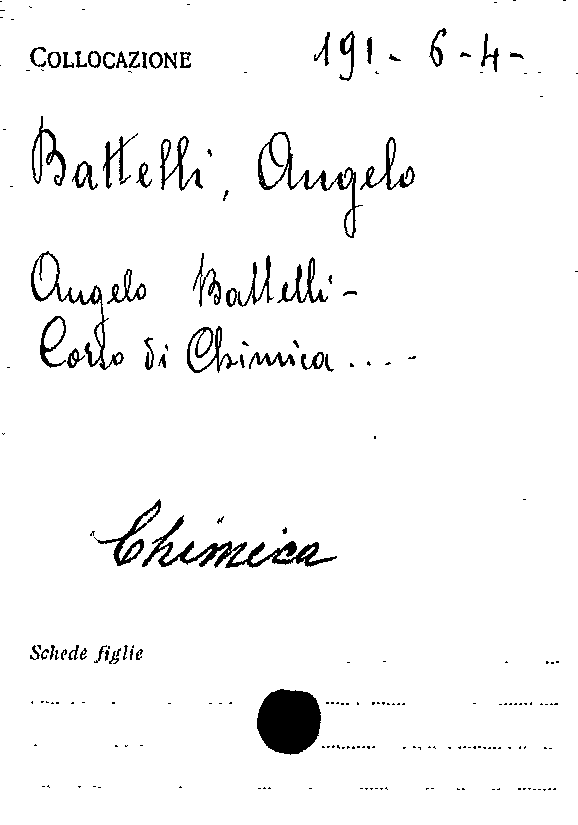 COLLOCAZIONE 191-6-4-
Battelli, Angelo
Angelo Battelli-
Corso di Chimica....
Chimica
Schede figlie